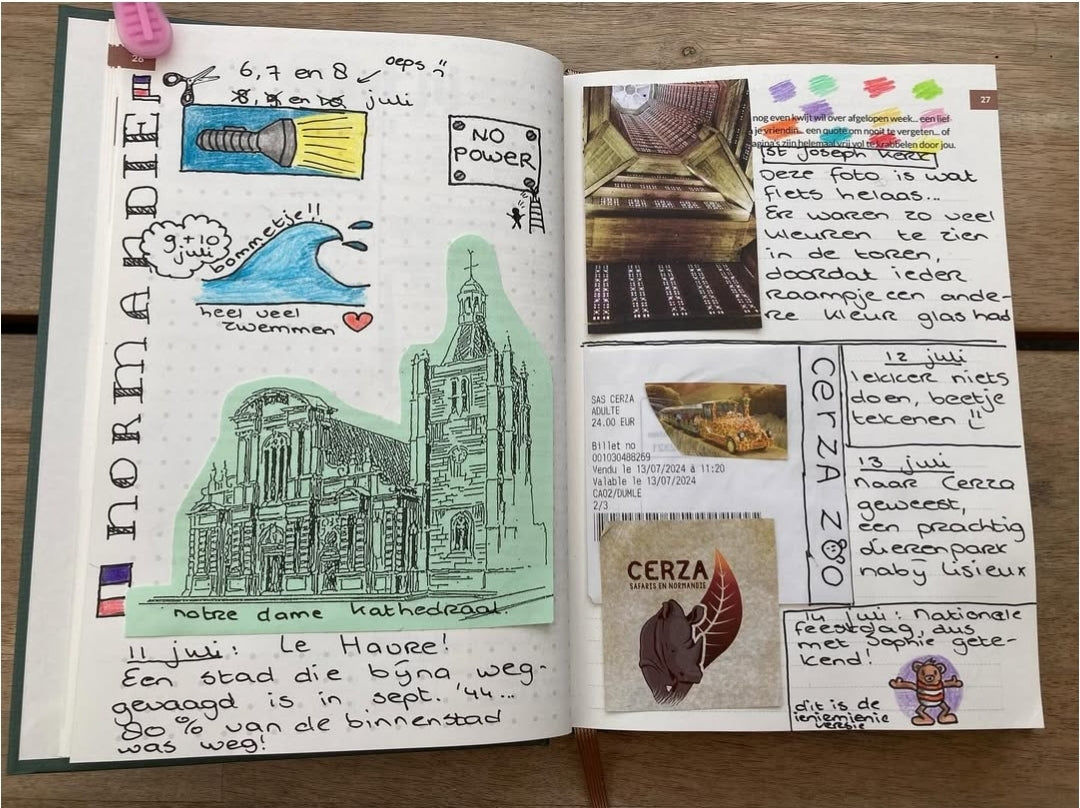 26
NORMANDIE
6,7 en 8
oeps
8, 9 en 10 juli
NO
POWER
9 + 10
juli
bommetje!!
heel veel
zwemmen
notre dame kathedraal.
11 juli: Le Havre!
Een stad die bijna weg-
gevaagd is in sept. '44...
80% van de binnenstad
was weg!
27
nog even kwijt wil over afgelopen week... een lief
je vriendin... een quote om nooit te vergeten... of
pagina's zijn helemaal vrij vol te krabbelen door jou.
St Joseph kerk
Deze foto is wat
fiets helaas...
Er waren zo veel
kleuren te zien
in de toren,
doordat ieder
raampje een ande-
re kleur glas had
SAS CERZA
ADULTE
24.00 EUR
Billet no
001030488269
Vendu le 13/07/2024 à 11:20
Valable le 13/07/2024
CA02/DUMLE
2/3
CERZA
SAFARIS EN NORMANDIE
CERZA ZOO
12 juli
lekker niets
doen, beetje
tekenen
13 juli
naar Cerza
geweest,
een prachtig
dierenpark
nabij Lisieux
14 juli: Nationale
feestdag, dus
met Sophie gete-
kend!
dit is de
ieniemienie
versie